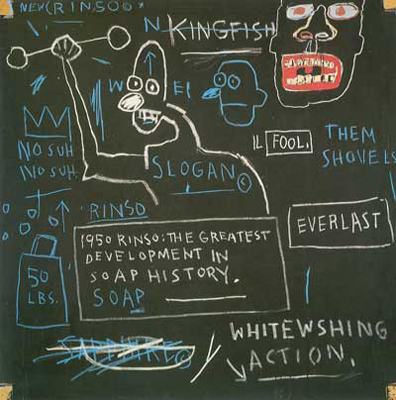 NEW(RINSO©
N KINGFISH
W EI
IL FOOL.
THEM
SHOVELS
NO SUH
NO SUH.
SLOGAN©
RINSO
EVERLAST
1950 RINSO: THE GREATEST
DEVELOPMENT IN
SOAP HISTORY.
SOAP
50
LBS.
SAPPHIRE©
WHITEWSHING
ACTION.